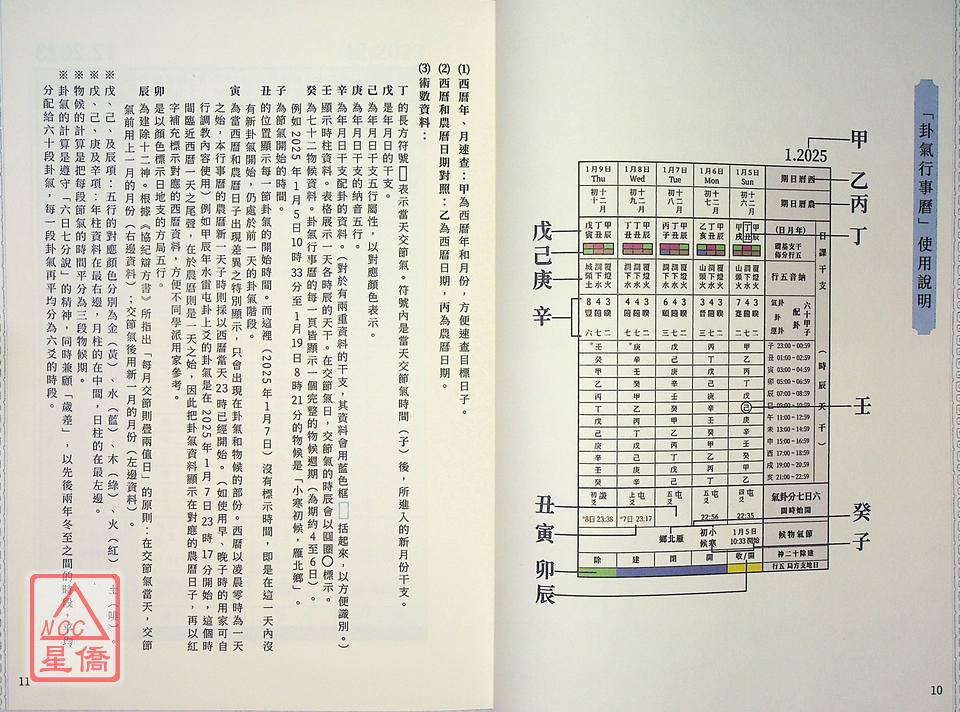 「卦氣行事曆」使用說明
甲
1.2025
乙
丙
丁
戊
己
庚
辛
壬
癸
子
丑
寅
卯
辰
西曆日期
1月5日 Sun
1月6日 Mon
1月7日 Tue
1月8日 Wed
1月9日 Thu
農曆日期
十二月初六
十二月初七
十二月初八
十二月初九
十二月初十
日課干支
(年月日)
甲辰 丁丑 甲戌
甲辰 丁丑 乙亥
甲辰 丁丑 丙子
甲辰 丁丑 丁丑
甲辰 丁丑 戊寅
納音五行
覆燈火 澗下水 山頭火
覆燈火 澗下水 山頭火
覆燈火 澗下水 澗下水
覆燈火 澗下水 澗下水
覆燈火 澗下水 城頭土
六十甲子配卦
卦氣
(時辰天干)
子 23:00~00:59
丑 01:00~02:59
寅 03:00~04:59
卯 05:00~06:59
辰 07:00~08:59
巳 09:00~10:59
午 11:00~12:59
未 13:00~14:59
申 15:00~16:59
酉 17:00~18:59
戌 19:00~20:59
亥 21:00~22:59
六日七分卦氣
開始時間
22:35
22:56
*7日 23:17
*8日 23:38
節氣物候
1月5日
10:33 開始
小寒初
雁北鄉
建除十二神
收/開
開
閉
建
除
日地支方局五行
10
(1) 西曆年、月速查：甲為西曆年和月份，方便速查目標日子。
(2) 西曆和農曆日期對照：乙為西曆日期，丙為農曆日期。
(3) 術數資料：
丁的長方符號▯表示當天交節氣。符號內是當天交節氣時間（子）後，所進入的新月份干支。
戊是年月日的干支。
己為年月日干支五行屬性，以對應顏色表示。
庚為年月日干支的納音五行。
辛為年月日干支配卦的資料。（對於有兩重資料的干支，其資料會用藍色框▯括起來，以方便識別。）
壬顯示時柱資料。表格展示一天各時辰的天干。在交節氣日，交節氣的時辰會以圓圈○標示。
癸為七十二物候資料。卦氣行事曆的每一頁皆顯示一個完整的物候週期（為期約4至6日）。
例如2025年1月5日10時33分至1月19日8時21分的物候是「小寒初候，雁北鄉」。
子為節氣開始的時間。
丑的位置顯示每一節卦氣的開始時間。而這裡（2025年1月7日）沒有標示時間，即是在這一天內沒
有新卦氣開始，仍處於前一天的卦氣階段。
寅為當西曆和農曆日子出現差異之特別顯示，只會出現在卦氣和物候的部份。西曆以凌晨零時為一天
之始，本行事曆的農曆新一天子時則採以西曆當天23時已經開始。（如使用早、晚子時的用家可自
行調教內容使用）例如甲辰年水雷屯卦上爻的卦氣是在2025年1月7日23時17分開始，這個時
間臨近西曆一天之尾聲，在於農曆則是一天之始，因此把卦氣資料顯示在對應的農曆日子，再以紅
字補充標示對應的西曆資料，方便不同學派用家參考。
卯是以顏色標示日地支的方局五行。
辰為建除十二神。根據《協紀辯方書》所指出「每月交節則疊兩值日」的原則：在交節氣當天，交節
氣前用上一月的月份（右邊資料）；交節氣後用新一月的月份（左邊資料）。
※戊、己、及辰項：五行的對應顏色分別為金（黃）、水（藍）、木（綠）、火（紅）、土（啡）。
※戊、己、庚及辛項：年柱資料在最右邊，月柱的在中間，日柱的在最左邊。
※物候的計算是把每段節氣的時間平分為三段物候期。
※卦氣的計算是遵守「六日七分說」的精神，同時兼顧「歲差」，以先後兩年冬至之間的時段，平均
分配給六十段卦氣，每一段卦氣再平均分為六爻的時段。
11
NCC
星僑